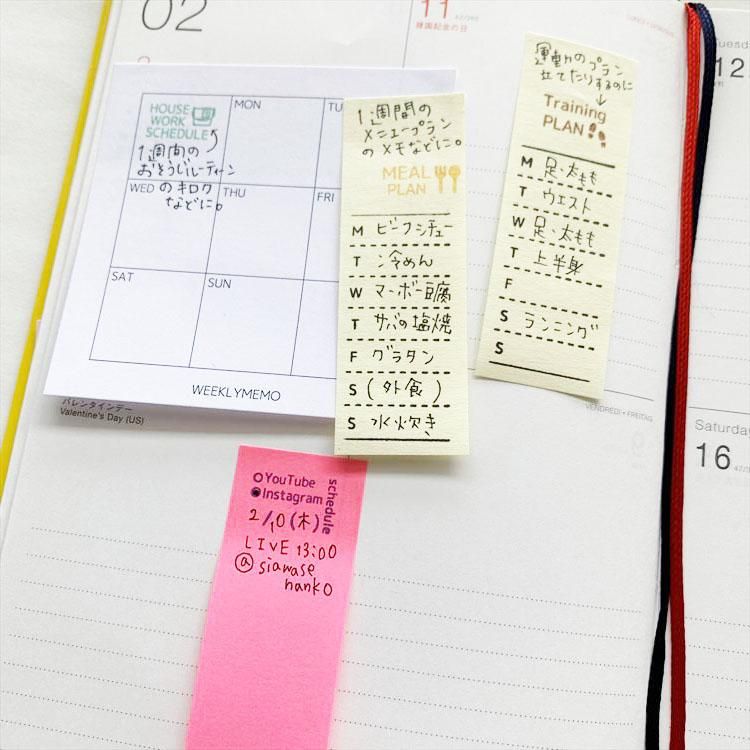 02
11
42/365
建国記念の日
HOUSE
WORK
SCHEDULE
1週間の
おそうじルーティーン
のキロク
などに。
MON
TU
WED
THU
FRI
SAT
SUN
WEEKLYMEMO
バレンタインデー
Valentine's Day (US)
1週間の
メニュープラン
のメモなどに。
MEAL
PLAN
M ビーフシチュー
T 冷めん
W マーボー豆腐
T サバの塩焼
F グラタン
S (外食)
S 水炊き
運動のプラン
立てたりするのに
Training
PLAN
M 足・太もも
T ウエスト
W 足・太もも
T 上半身
F
S ランニング
S
YouTube
Instagram
schedule
2/10(木)
LIVE 13:00
@siawase
hanko
VENDREDI • FREITAG
12
Saturday
16